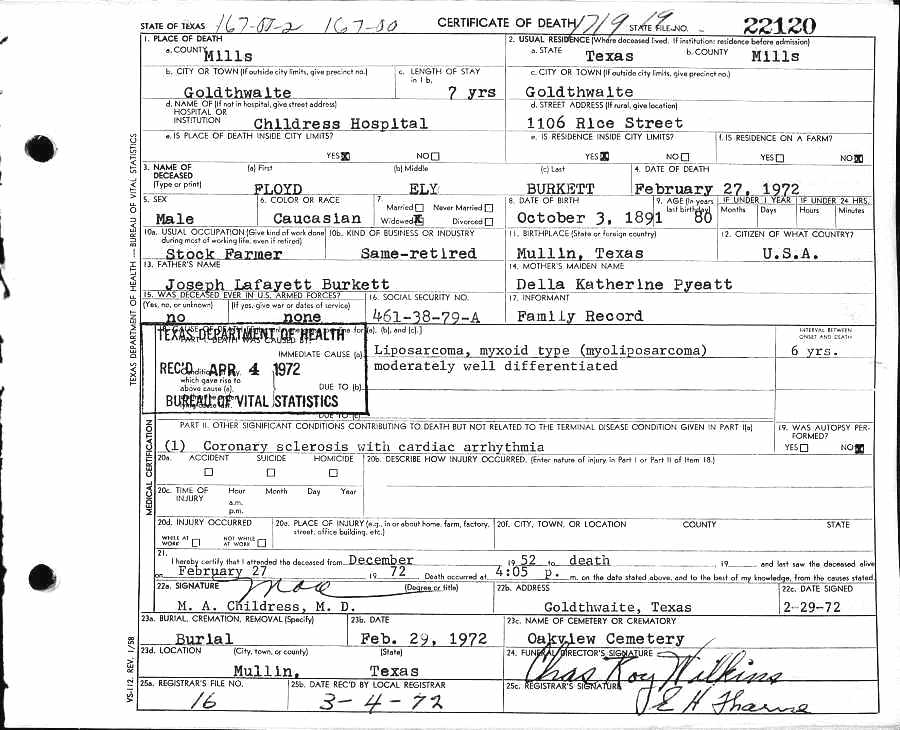 STATE OF TEXAS 167-07-2 167-00 CERTIFICATE OF DEATH 1719 19 STATE FILE NO. 22120
1. PLACE OF DEATH
a. COUNTY Mills
2. USUAL RESIDENCE (Where deceased lived. If institution: residence before admission)
a. STATE Texas b. COUNTY Mills
b. CITY OR TOWN (If outside city limits, give precinct no.) Goldthwaite
c. LENGTH OF STAY in 1 b. 7 yrs
c. CITY OR TOWN (If outside city limits, give precinct no.) Goldthwaite
d. NAME OF (If not in hospital, give street address) HOSPITAL OR INSTITUTION Childress Hospital
d. STREET ADDRESS (If rural, give location) 1106 Rice Street
e. IS PLACE OF DEATH INSIDE CITY LIMITS? YES NO
e. IS RESIDENCE INSIDE CITY LIMITS? YES NO
f. IS RESIDENCE ON A FARM? YES NO
3. NAME OF DECEASED (Type or print)
(a) First FLOYD (b) Middle ELY (c) Last BURKETT
4. DATE OF DEATH February 27, 1972
5. SEX Male
6. COLOR OR RACE Caucasian
7. Married Never Married Widowed Divorced
8. DATE OF BIRTH October 3, 1891
9. AGE (In years last birthday) 80
IF UNDER 1 YEAR Months Days
IF UNDER 24 HRS. Hours Minutes
10a. USUAL OCCUPATION (Give kind of work done during most of working life, even if retired) Stock Farmer
10b. KIND OF BUSINESS OR INDUSTRY Same-retired
11. BIRTHPLACE (State or foreign country) Mullin, Texas
12. CITIZEN OF WHAT COUNTRY? U.S.A.
13. FATHER'S NAME Joseph Lafayett Burkett
14. MOTHER'S MAIDEN NAME Della Katherine Pyeatt
15. WAS DECEASED EVER IN U.S. ARMED FORCES?
(Yes, no, or unknown) no (If yes, give war or dates of service) none
16. SOCIAL SECURITY NO. 461-38-79-A
17. INFORMANT Family Record
TEXAS DEPARTMENT OF HEALTH
REC'D APR 4 1972
BUREAU OF VITAL STATISTICS
(a), (b), and (c).]
IMMEDIATE CAUSE (a) Liposarcoma, myxoid type (myoliposarcoma)
moderately well differentiated
INTERVAL BETWEEN ONSET AND DEATH 6 yrs.
which gave rise to
above cause (a),
DUE TO (b)
DUE TO (c)
PART II. OTHER SIGNIFICANT CONDITIONS CONTRIBUTING TO DEATH BUT NOT RELATED TO THE TERMINAL DISEASE CONDITION GIVEN IN PART I(a)
(1) Coronary sclerosis with cardiac arrhythmia
19. WAS AUTOPSY PERFORMED? YES NO
20a. ACCIDENT SUICIDE HOMICIDE
20b. DESCRIBE HOW INJURY OCCURRED. (Enter nature of injury in Part I or Part II of Item 18.)
20c. TIME OF INJURY Hour Month Day Year
a.m.
p.m.
20d. INJURY OCCURRED
WHILE AT WORK NOT WHILE AT WORK
20e. PLACE OF INJURY (e.g., in or about home, farm, factory, street, office building, etc.)
20f. CITY, TOWN, OR LOCATION COUNTY STATE
21. I hereby certify that I attended the deceased from December 19 52 to death, 19 and last saw the deceased alive
on February 27 19 72 Death occurred at 4:05 p. m. on the date stated above, and to the best of my knowledge, from the causes stated.
22a. SIGNATURE (Degree or title)
M. A. Childress, M. D.
22b. ADDRESS Goldthwaite, Texas
22c. DATE SIGNED 2-29-72
23a. BURIAL, CREMATION, REMOVAL (Specify) Burial
23b. DATE Feb. 29, 1972
23c. NAME OF CEMETERY OR CREMATORY Oakview Cemetery
23d. LOCATION (City, town, or county) (State)
Mullin, Texas
24. FUNERAL DIRECTOR'S SIGNATURE Chas Roy Wilkins
25a. REGISTRAR'S FILE NO. 16
25b. DATE REC'D BY LOCAL REGISTRAR 3-4-72
25c. REGISTRAR'S SIGNATURE
TEXAS DEPARTMENT OF HEALTH — BUREAU OF VITAL STATISTICS
MEDICAL CERTIFICATION
VS-112. REV. 1/58